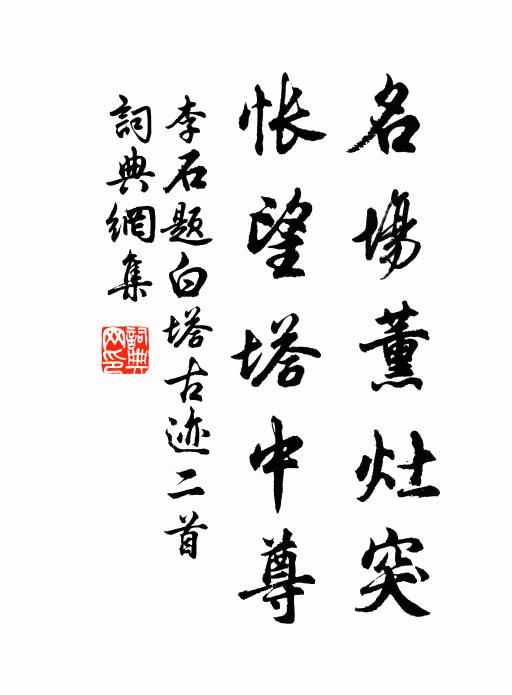 名場薰灶突
悵望塔中尊
李石题白塔古迹二首
詞典網集
詞典网印